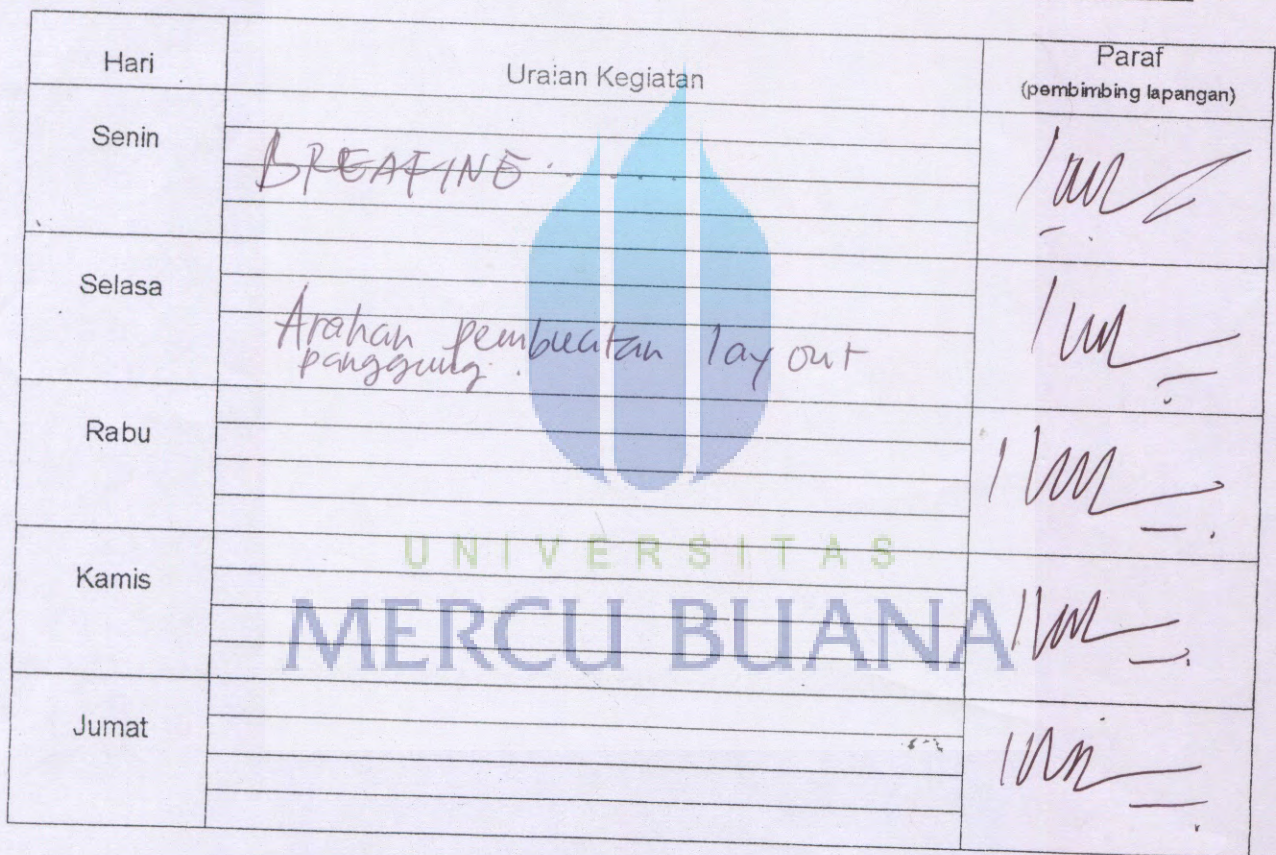 Hari
Uraian Kegiatan
Paraf
(pembimbing lapangan)
Senin
BREAFINE
Selasa
Arahan pembuatan lay out
panggung.
Rabu
Kamis
Jumat
UNIVERSITAS
MERCU BUANA